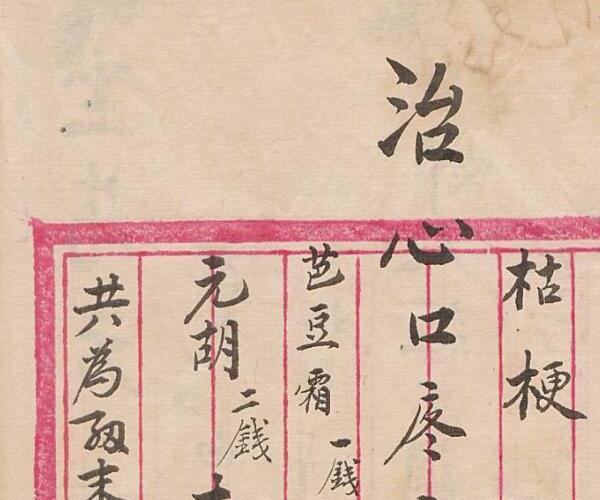 枯梗
治心口疼
芭豆霜 一錢
元胡 二錢
共為細末